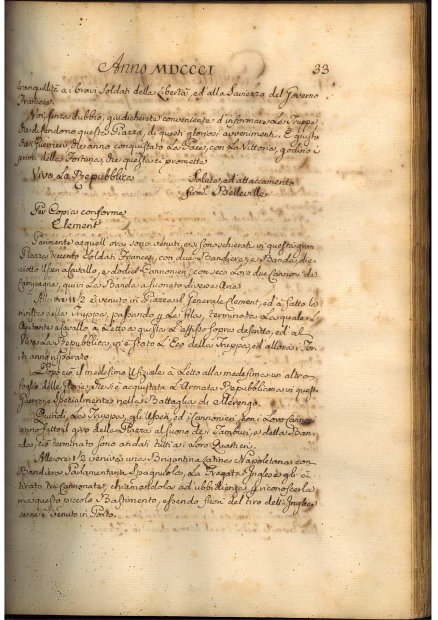 Anno MDCCCI 33
tranquillità a i bravi Soldati della Libertà, ed alla Saviezza del Governo
Francese.
Non senza dubbio, giudicherete conveniente d'informare le Truppe
che difendono questa Piazza, di questi gloriosi avvenimenti. È giusto
che i Guerrieri, che anno conquistato la Pace, con la Vittoria, godino i
primi della Fortuna, che questa ci promette.
Viva La Repubblica Salute, ed attaccamento
firm. Belleville
Per Copia conforme
Clement
Parimente a quell'ora sono venuti, e si sono schierati in questa gran
Piazza Soldati Francesi, con due Bandiere, e Bande, di
a Cavallo, e dodici Cannonieri, con seco Loro due Cannoni da
Campagna, quivi La Banda a suonato diverse Arie.
Alle ore 11 1/2 è venuto in Piazza il Generale Clement, ed à fatto la
rivista della Truppa, passando per Le file, terminata La quale L'
Ajutante a Cavallo à Letto a questa L'affisso sopra descritto, ed al
Viva La Repubblica, vi è stato L'Eco della Truppa, ed allora i For
ti anno sparato.
Doppo ciò il medesimo Uffiziale à Letto alla medesima un altro
foglio delle glorie, che si è acquistata L'Armata Repubblicana in questa
Guerra, e specialmente nella Battaglia di Marengo.
Quindi, Le Truppe, gli ed i Cannonieri, con i Loro Cannoni
anno fatto il giro della Piazza al suono de i Tamburi, e della Ban
da, e ciò terminato sono andati tutti a i Loro Quartieri.
Alle ore 1 1/2 veniva una Brigantina Latina Napoletana con
Bandiera Parlamentaria Spagnuola, La Fregata Inglese gli à
tirato tre Cannonate, chiamandola ad ubbidienza, a riconoscerla
ma questo piccolo Bastimento, essendo fuori del tiro dell'Inglese
se ne è venuto in Porto.